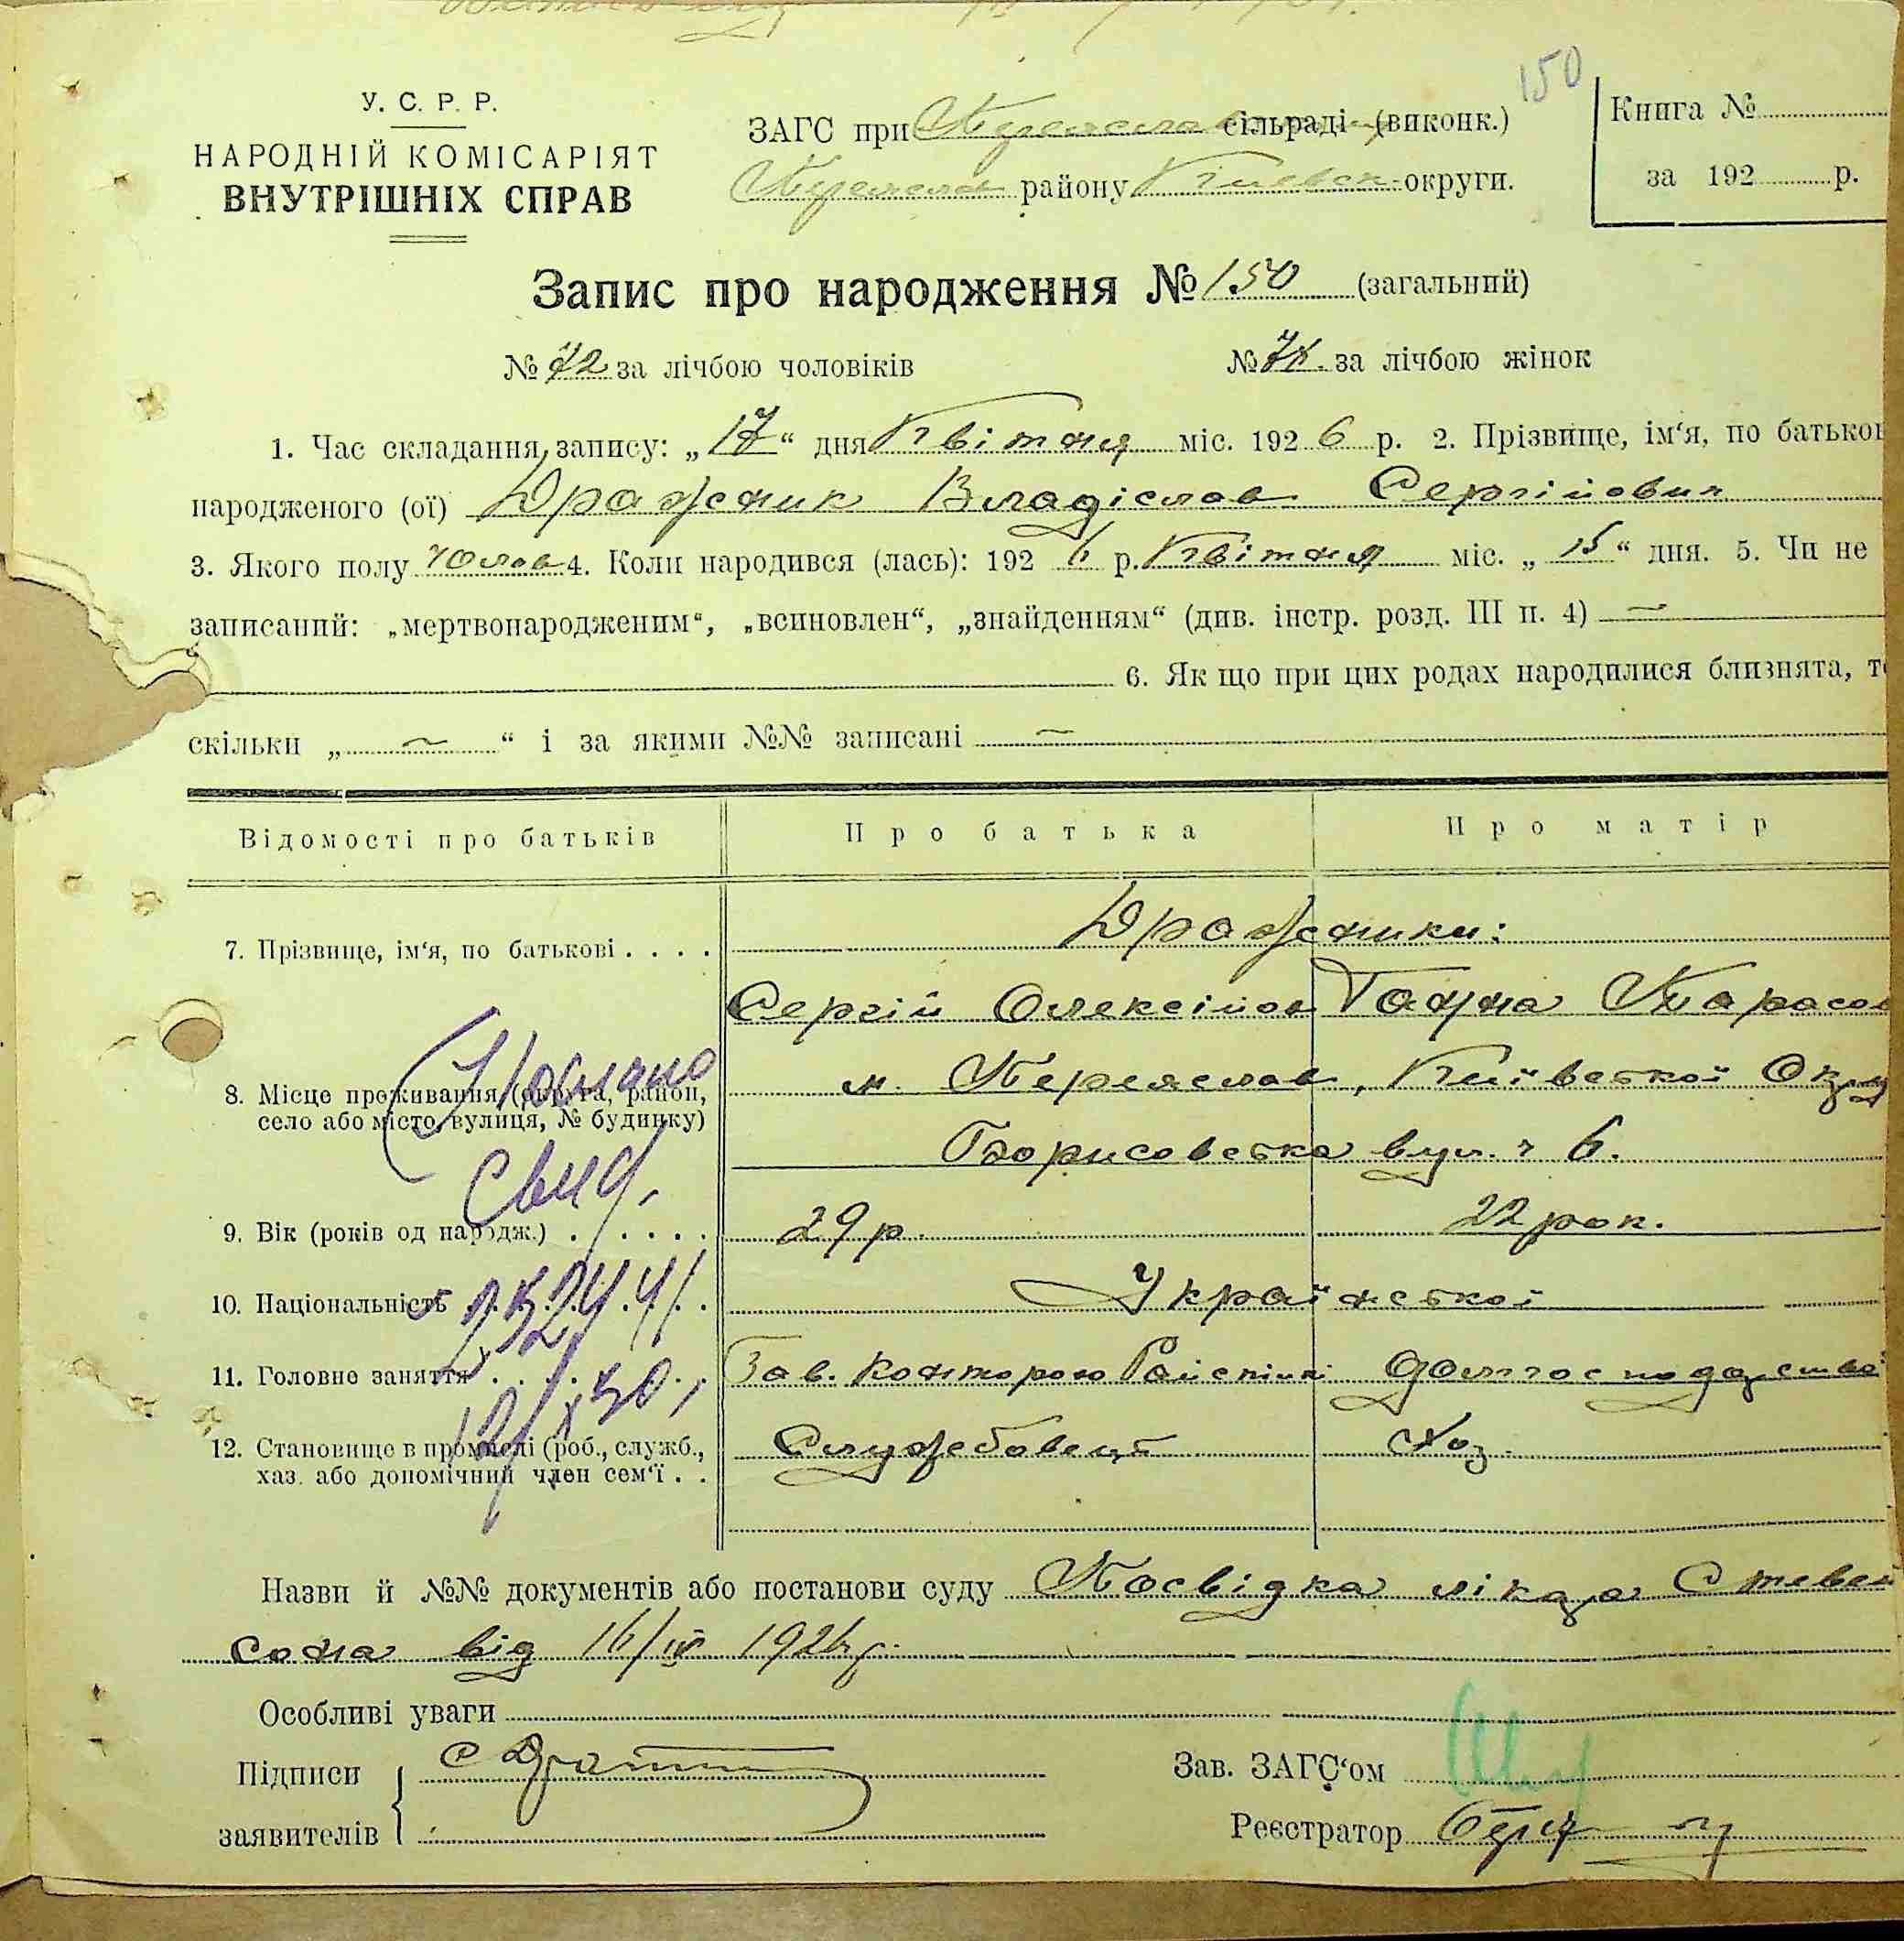 150
У. С. Р. Р.
НАРОДНІЙ КОМІСАРІЯТ
ВНУТРІШНІХ СПРАВ
ЗАГС при Переяслав сільраді (виконк.)
Переяслав району Київськ округи.
Книга №
за 192 р.
Запис про народження № 150 (загальний)
№ 72 за лічбою чоловіків № 78. за лічбою жінок
1. Час складання запису: „17“ дня Квітня міс. 1926 р. 2. Прізвище, ім‘я, по батьков
народженого (ої) Дражник Владіслав Сергійович
3. Якого полу чолов 4. Коли народився (лась): 1926 р. Квітня міс. „15“ дня. 5. Чи не
записаний: „мертвонародженим“, „всиновлен“, „знайденням“ (див. інстр. розд. III п. 4) —
6. Як що при цих родах народилися близнята, то
скільки „ ~ “ і за якими №№ записані ~
Відомості про батьків Про батька Про матір
7. Прізвище, ім‘я, по батькові . . . . Дражники:
Сергій Олексійов Ганна Тарасов
8. Місце проживання (округа, район, м. Переяслав, Київської Окр
село або місто, вулиця, № будинку) Борисовська вул. ч 6.
Послано
свид.
9. Вік (років од народж.) . . . . . 29 р. 22 рок.
10. Національність . . . . Української
11. Головне заняття . . . . Зав. конторою Райспілк домгосподарство
12. Становище в промислі (роб., служб., Службовець Хоз.
хаз. або допомічний член сем‘ї . .
12/X 30,
Назви й №№ документів або постанови суду Посвідка лікаря Стевен
сона від 16/IV 1926 р.
Особливі уваги
Підписи
заявителів
Зав. ЗАГС‘ом
Реєстратор